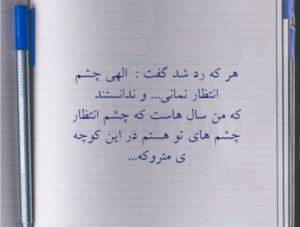 هر که رد شد گفت : الهی چشم
انتظار نمانی... و ندانستند
که من سال هاست که چشم انتظار
چشم های تو هستم در این کوچه
ی متروکه...